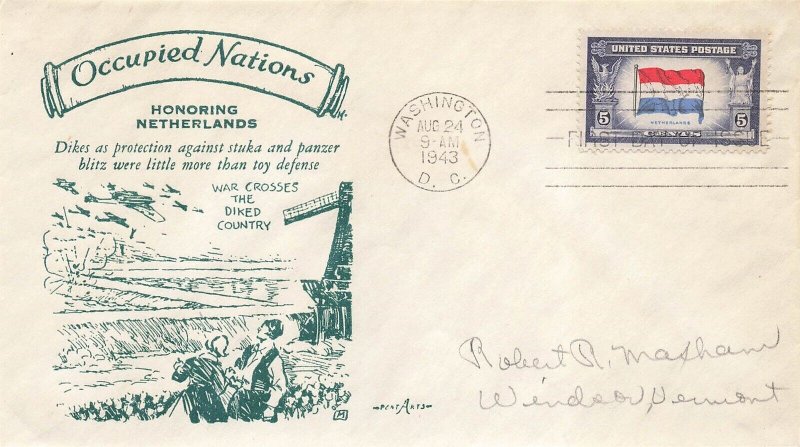 Occupied Nations
HONORING
NETHERLANDS
Dikes as protection against stuka and panzer
blitz were little more than toy defense
WAR CROSSES
THE
DIKED
COUNTRY
PENT ARTS
M
WASHINGTON
AUG 24
9-AM
1943
D. C.
UNITED STATES POSTAGE
NETHERLANDS
5 CENTS 5
FIRST DAY OF ISSUE
Robert R. Masham
Windsor, Vermont